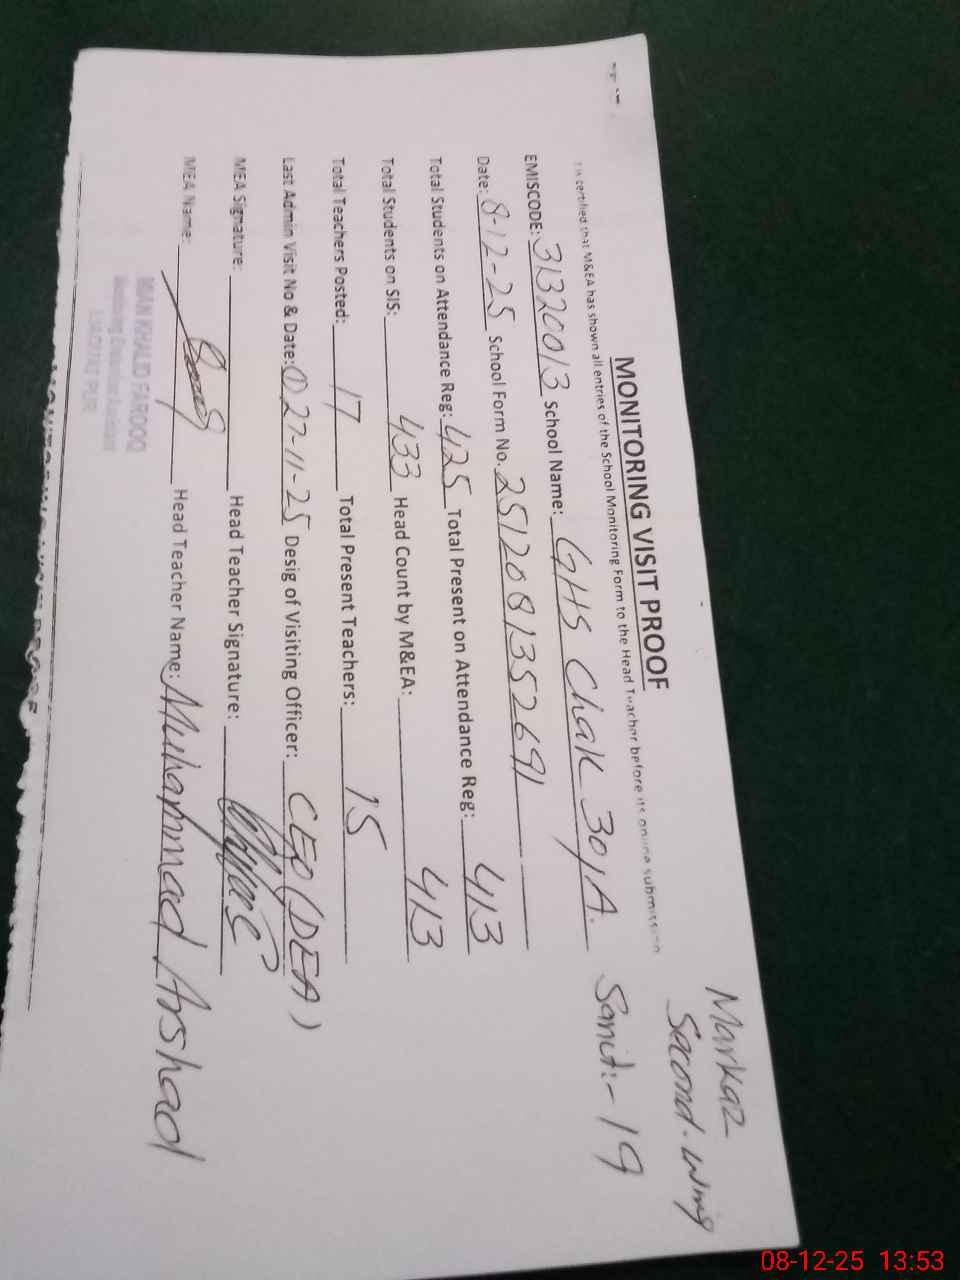 Markaz
Second-wing
MONITORING VISIT PROOF
It is certified that M&EA has shown all entries of the School Monitoring Form to the Head Teacher before its online submission
EMISCODE: 31320013 School Name: GHS Chak 30/A. Sanct:- 19
Date: 8-12-25 School Form No. 2512081352691
Total Students on Attendance Reg: 425 Total Present on Attendance Reg: 413
Total Students on SIS: 433 Head Count by M&EA: 413
Total Teachers Posted: 17 Total Present Teachers: 15
Last Admin Visit No & Date: 0 27-11-25 Desig of Visiting Officer: CEO (DEA)
MEA Signature: Head Teacher Signature:
MEA Name: Head Teacher Name: Muhammad Arshad
MIAN KHALID FAROOQ
LIAQUAT PUR
08-12-25 13:53